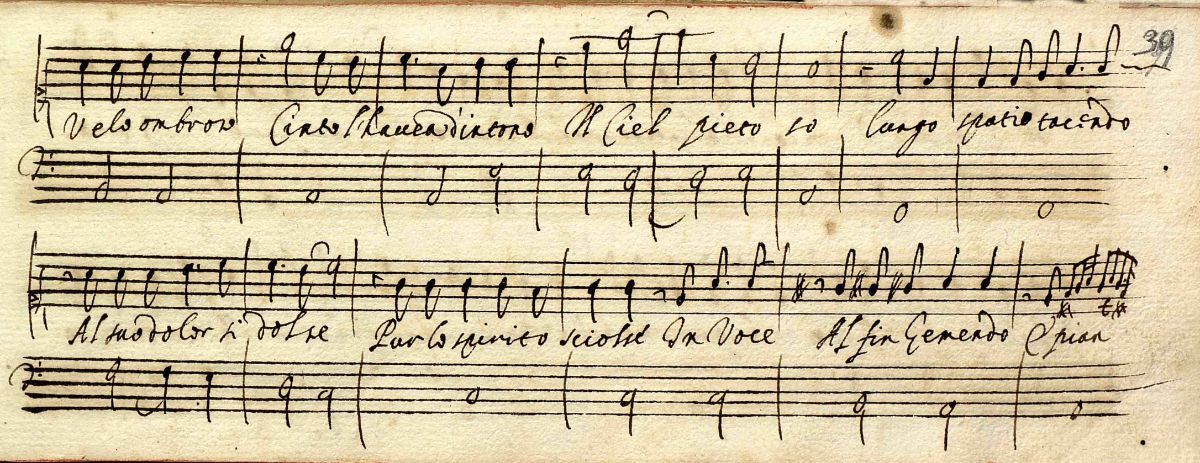 39
Velo ombroso Cinto l'havea d'intorno Il Ciel pieto so lungo spatio tacendo
Al suo dolor si dolse Pur lo spirito sciolse In Voce Al fin Gemendo E pian